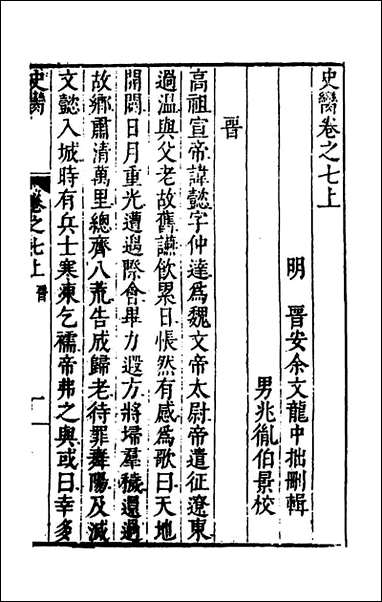 史臠卷之七上
明　晉安余文龍中拙刪輯
男兆胤伯景校
晉
高祖宣帝諱懿字仲達爲魏文帝太尉帝遣征遼東
過溫與父老故舊讌飲累日悵然有感爲歌曰天地
開闢日月重光遭遇際會畢力遐方將埽羣穢還過
故鄉肅清萬里總齊八荒告成歸老待罪舞陽及滅
文懿入城時有兵士寒凍乞襦帝弗之與或曰幸多
史臠
卷之七上
晉
一